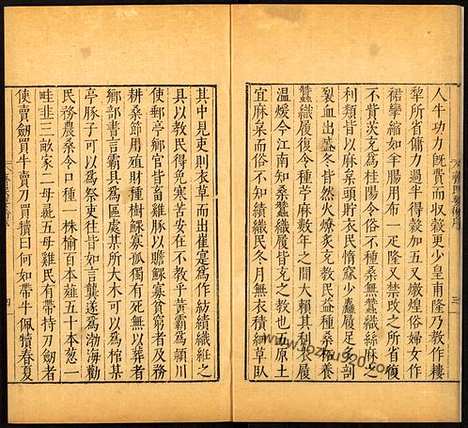 人牛功力既費而收穀更少皇甫隆乃教作耬
犁所省傭力過半得穀加五又燉煌俗婦女作
裙攣縮如羊腸用布一疋隆又禁改之所省復
不貲茨充為桂陽令俗不種桑無蠶織絲麻之
利類皆以麻枲頭貯衣民惰窳少麤履足多剖
裂血出盛冬皆然火燎炙充教民益種桑柘養
蠶織履復令種苧麻數年之間大賴其利衣履
溫煖今江南知桑蠶織履皆充之教也五原土
宜麻枲而俗不知織績民冬月無衣積細草臥
三
其中見吏則衣草而出崔寔為作紡績織絍之
具以教民得免寒苦安在不教乎黃霸為潁川
使郵亭鄉官皆畜雞豚以贍鰥寡貧窮者及務
耕桑節用殖財種樹鰥寡孤獨有死無以葬者
鄉部書言霸具為區處某所大木可以為棺某
亭豚子可以為祭吏往皆如言龔遂為渤海勸
民務農桑令口種一株榆百本薤五十本葱一
畦韭三畝家二母彘五母雞民有帶持刀劍者
使賣劍買牛賣刀買犢曰何如帶牛佩犢春夏
四